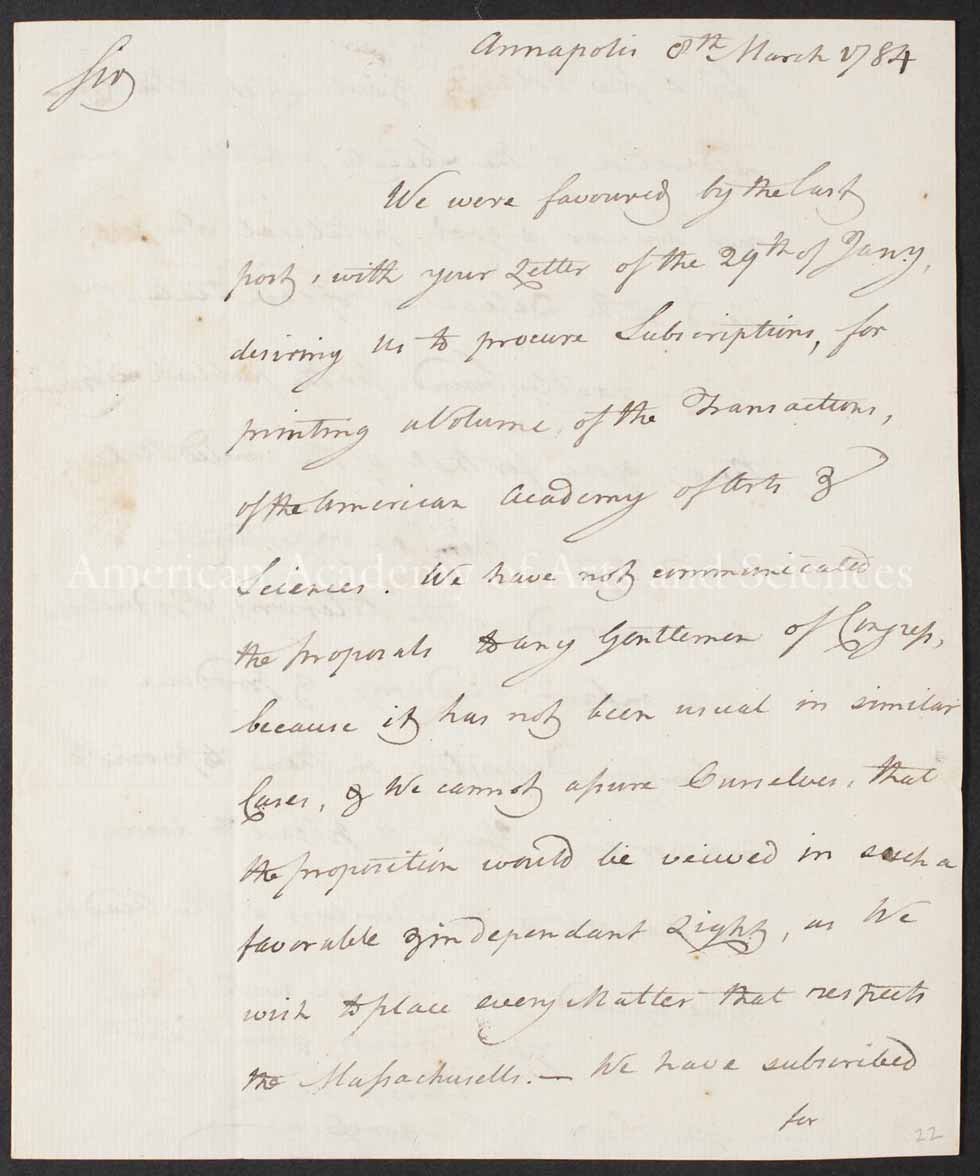 Annapolis 8th March 1784
Sir
We were favoured by the last
post, with your Letter of the 29th of Jany,
desiring us to procure Subscriptions, for
printing a Volume, of the Transactions,
of the American Academy of Arts &
American Academy of Arts and Sciences
Sciences. We have not communicated
the proposals to any Gentlemen of Congress,
because it has not been usual in similar
Cases, & We cannot assure Ourselves, that
the proposition would be veiwed in such a
favorable & independant Light, as We
wish to place every Matter that respects
the Massachusetts. — We have subscribed
for
22